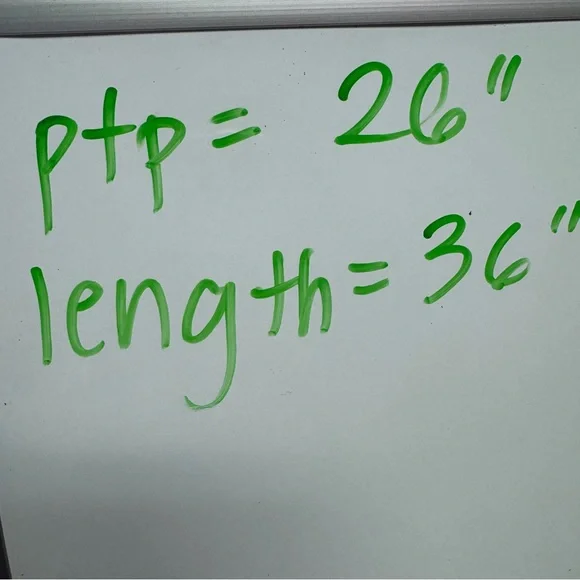 ptp = 26"
length = 36"